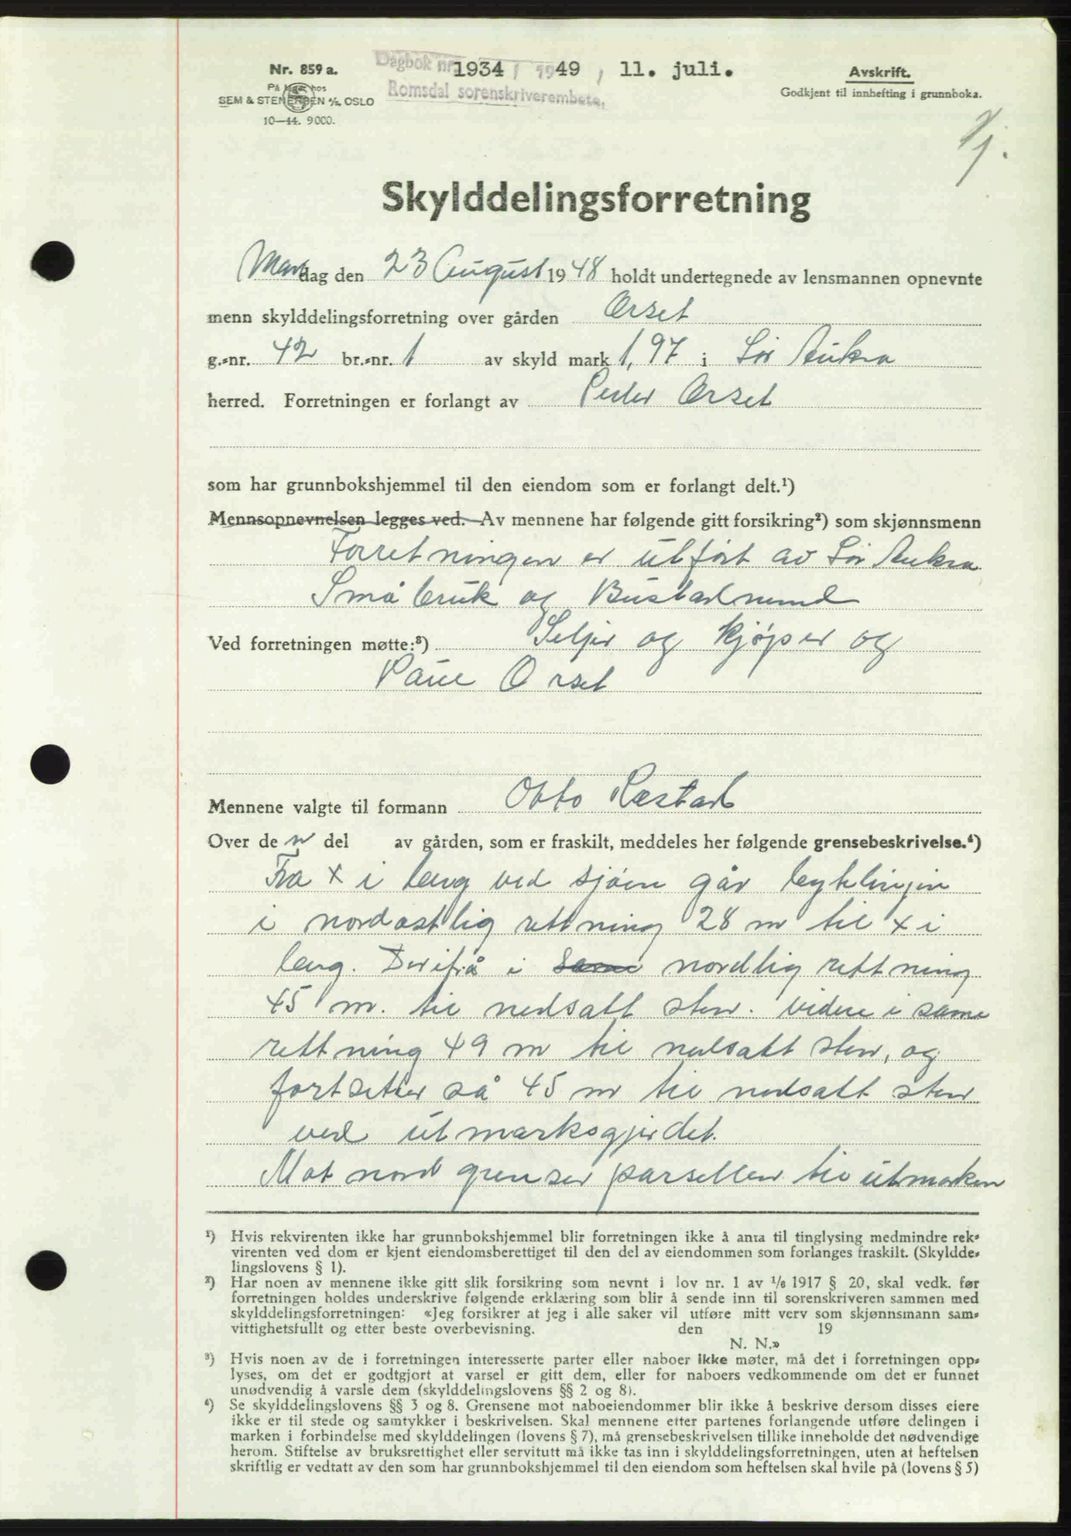 Nr. 859 a.
På lager hos
SEM & STENERSEN A/S, OSLO
10—44. 9000.
Dagbok nr. 1934 / 1949, 11. juli.
Romsdal sorenskriverembete.
Avskrift.
Godkjent til innhefting i grunnboka.
Skylddelingsforretning
Mandag den 23 August 1948 holdt undertegnede av lensmannen opnevnte
menn skylddelingsforretning over gården Orset
g.-nr. 42 br.-nr. 1 av skyld mark 1,97 i Sør Aukra
herred. Forretningen er forlangt av Peder Orset
som har grunnbokshjemmel til den eiendom som er forlangt delt.¹)
Mennsopnevnelsen legges ved. Av mennene har følgende gitt forsikring²) som skjønnsmenn
Forretningen er utført av Sør Aukra
Småbruk og Bustadnemd
Ved forretningen møtte:³) Seljer og kjøper og
Paul Orset
Mennene valgte til formann Otto Rastad
Over de n del av gården, som er fraskilt, meddeles her følgende grensebeskrivelse.⁴)
Fra x i berg ved sjøen går byklingen
i nordostlig rettning 28 m til x i
berg. Derifrå i same nordlig rettning
45 m. til nedsatt sten. videre i same
rettning 49 m til nedsatt sten, og
fortsetter så 45 m til nedsatt sten
ved utmarksgjerdet.
Mot nord grenser parsellen til utmarken
¹) Hvis rekvirenten ikke har grunnbokshjemmel blir forretningen ikke å anta til tinglysing medmindre rek-
virenten ved dom er kjent eiendomsberettiget til den del av eiendommen som forlanges fraskilt. (Skyldde-
lingslovens § 1).
²) Har noen av mennene ikke gitt slik forsikring som nevnt i lov nr. 1 av 1/6 1917 § 20, skal vedk. før
forretningen holdes underskrive følgende erklæring som blir å sende inn til sorenskriveren sammen med
skylddelingsforretningen: «Jeg forsikrer at jeg i alle saker vil utføre mitt verv som skjønnsmann sam-
vittighetsfullt og etter beste overbevisning. den 19
N. N.»
³) Hvis noen av de i forretningen interesserte parter eller naboer ikke møter, må det i forretningen opp-
lyses, om det er godtgjort at varsel er gitt dem, eller for naboers vedkommende om det er funnet
unødvendig å varsle dem (skylddelingslovens §§ 2 og 8).
⁴) Se skylddelingslovens §§ 3 og 8. Grensene mot naboeiendommer blir ikke å beskrive dersom disses eiere
ikke er til stede og samtykker i beskrivelsen. Skal mennene etter partenes forlangende utføre delingen i
marken i forbindelse med skylddelingen (lovens § 7), må grensebeskrivelsen tillike inneholde det nødvendige
herom. Stiftelse av bruksrettighet eller servitutt må ikke tas inn i skylddelingsforretningen, uten at heftelsen
skriftlig er vedtatt av den som har grunnbokshjemmel til den eiendom som heftelsen skal hvile på (lovens § 5)